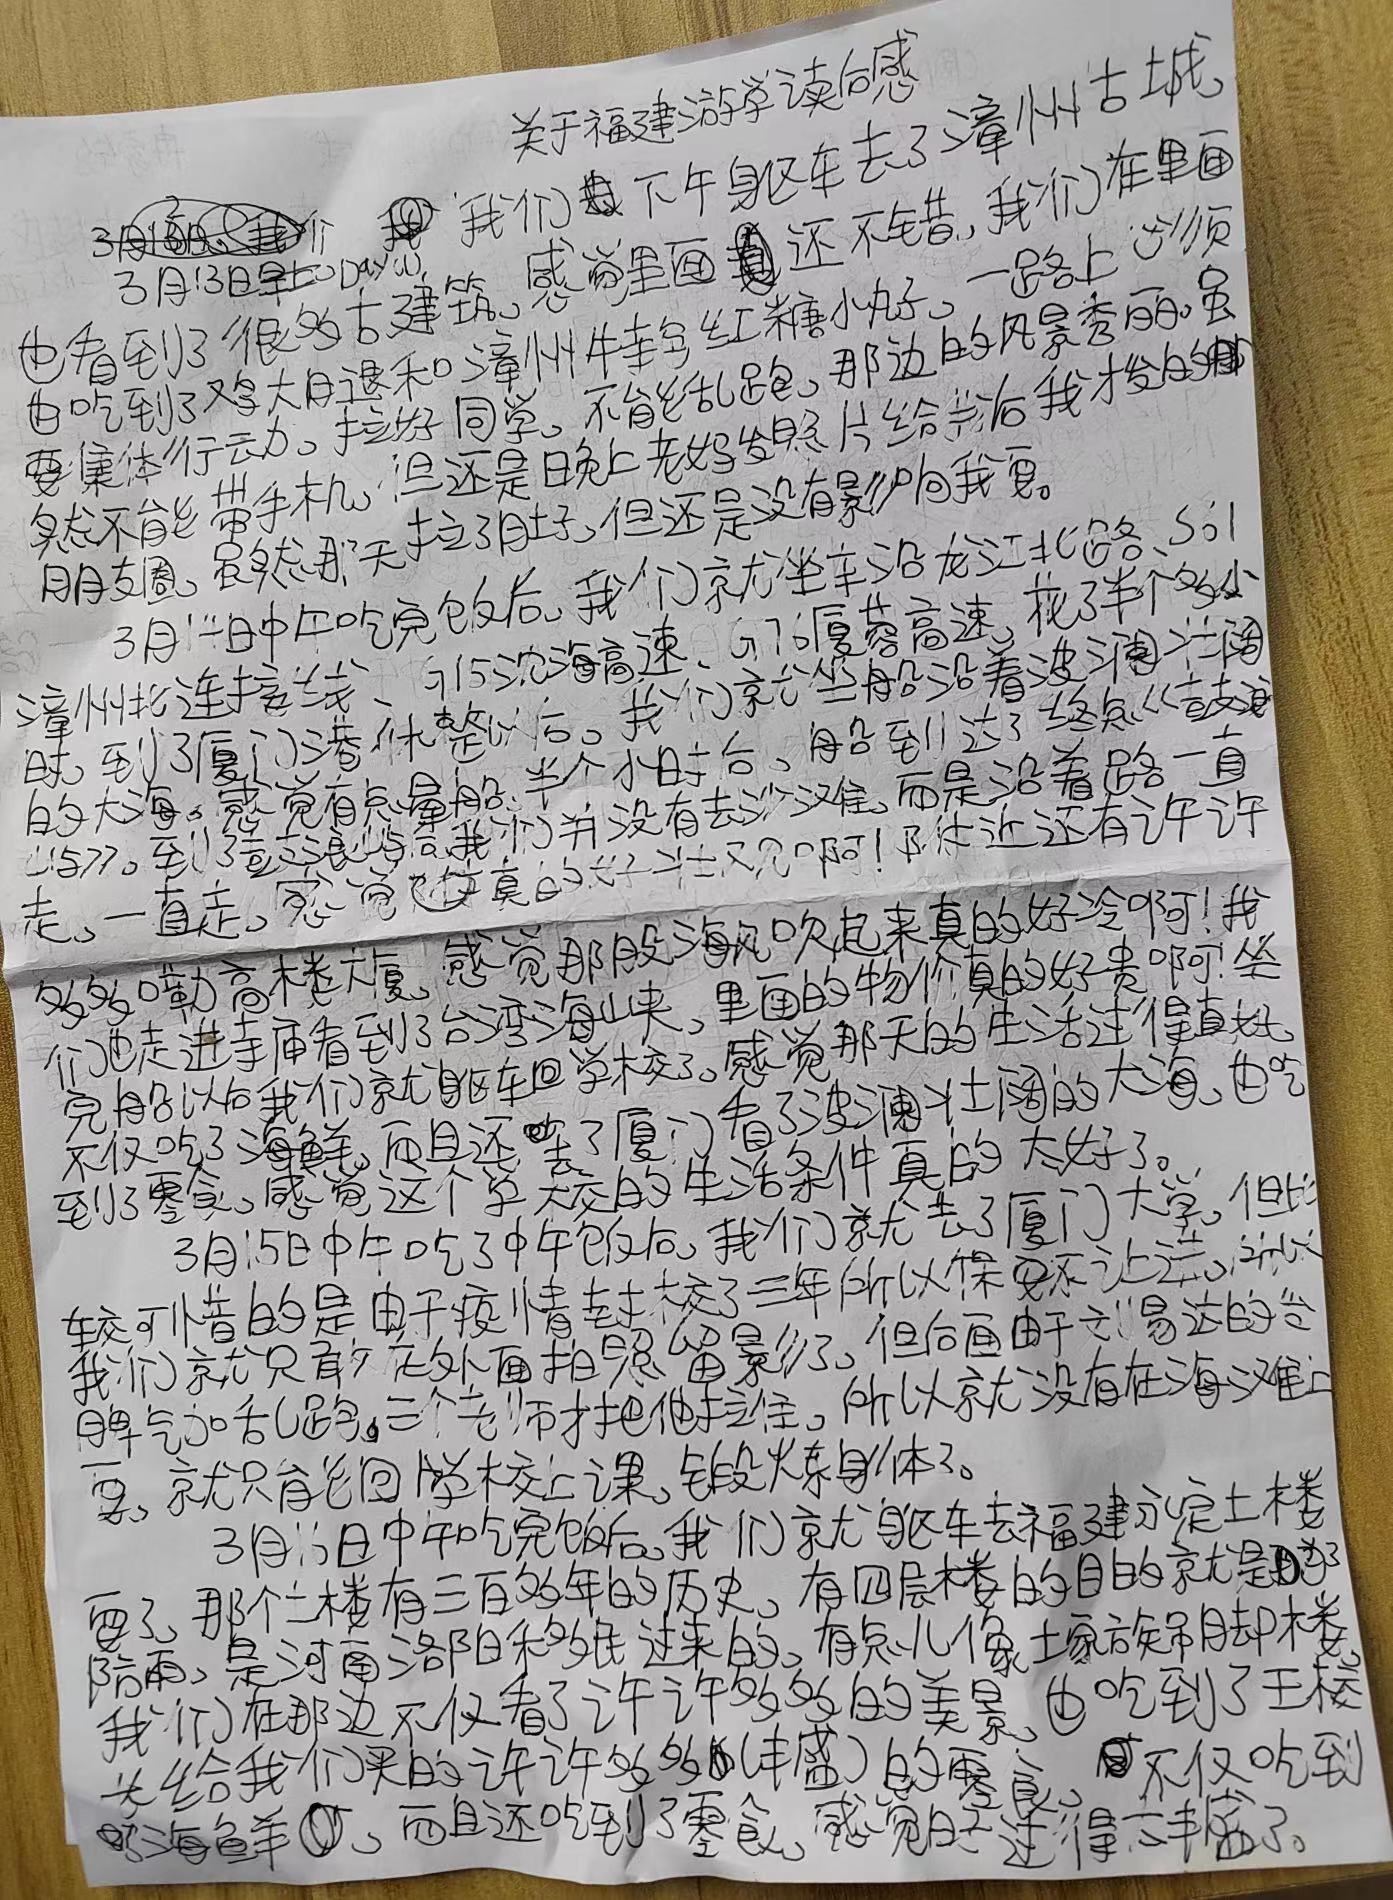 关于福建游学读后感
3月13日早上Day(1) 我们下午驱车去了漳州古城。
也看到了很多古建筑。感觉里面还不错。我们在里面
也吃到了鸡大腿和漳州牛轧红糖小丸子。一路上必须
要集体行动。拉好同学。不能乱跑。那边的风景秀丽。虽
然不能带手机。但还是晚上老妈发照片给我后我才发的
朋友圈。虽然那天拉了肚子。但还是没有影响我耍。
3月14日中午吃完饭后。我们就坐车沿龙江北路、S01
漳州北连接线、G15沈海高速、G76厦蓉高速。花了半个多小
时。到了厦门港休整以后。我们就坐船沿着波澜壮阔
的大海。感觉有点晕船。半个小时后。船到达了终点《鼓浪
屿》。到了鼓浪屿后我们并没有去沙滩。而是沿着路一直
走。一直走。感觉这真的好壮观啊！附近还有许许
多多嘞高楼大厦。感觉那股海风吹起来真的好冷啊！我
们也走进寺庙看到了台湾海峡。里面的物价真的好贵啊！坐
完船以后我们就驱车回学校了。感觉那天的生活过得真好。
不仅吃了海鲜。而且还去了厦门看了波澜壮阔的大海。也吃
到了零食。感觉这个学校的生活条件真的太好了。
3月15日中午吃了中午饭后。我们就去了厦门大学。但比
较可惜的是由于疫情封校了三年所以保安不让进。所以
我们就只敢在外面拍照留影了。但后面由于刘易达的
脾气加乱跑。三个老师才把他拉住。所以就没有在海滩上
耍。就只有能回学校上课。锻炼身体了。
3月16日中午吃完饭后。我们就驱车去福建永定土楼
耍了。那个土楼有三百多年的历史。有四层楼的目的就是为了
防雨。是河南洛阳移民过来的。有点儿像土家族吊脚楼。
我们在那边不仅看了许许多多的美景。也吃到了王校
长给我们买的许许多多（丰盛）的零食。不仅吃到
海鲜。而且还吃到了零食。感觉日子过得太丰盛了。